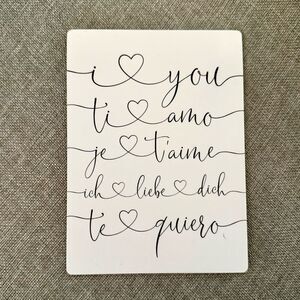 i ♡ you
ti ♡ amo
je ♡ t'aime
ich ♡ liebe ♡ dich
te ♡ quiero